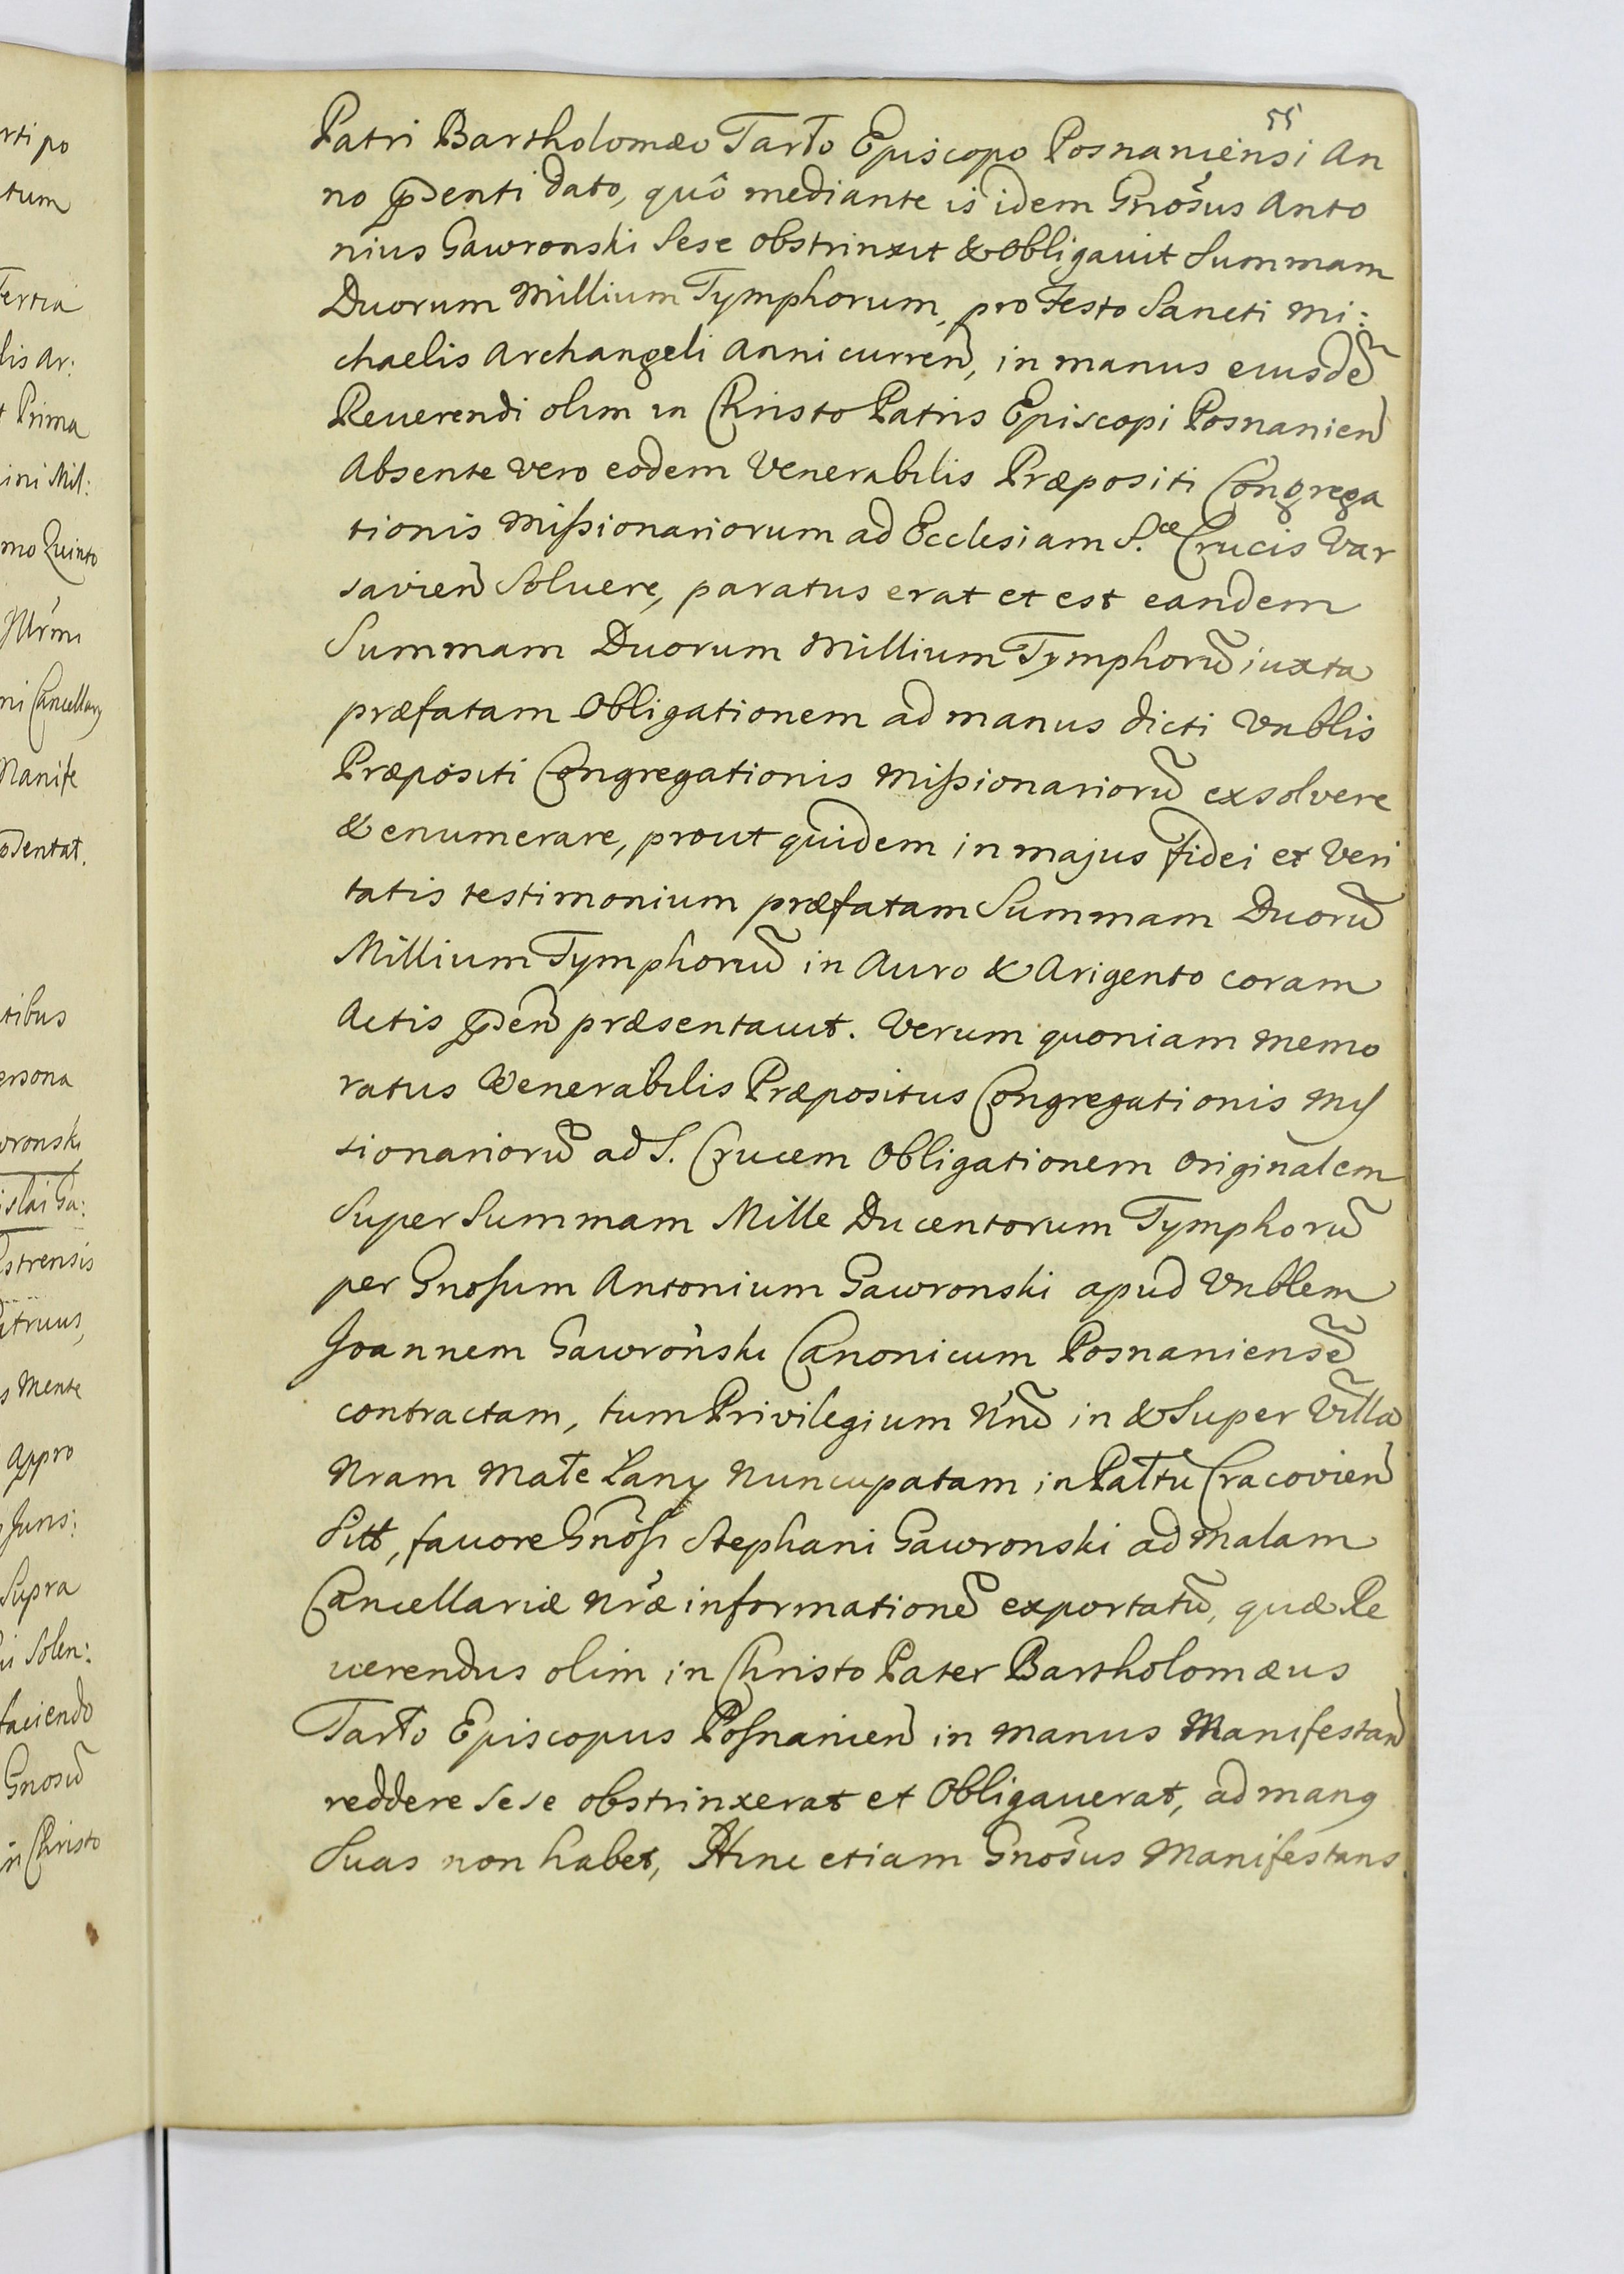 55
Patri Bartholomæo Tarło Episcopo Posnaniensi An
no p̃senti dato, quô mediante is idem Gnõsus Anto
nius Gawronski sese obstrinxit & obligavit Summam
Duorum Millium Tymphorum, pro Festo Sancti Mi:
chaelis Archangeli Anni curreñ, in manus eiusdẽ
Reuerendi olim in Christo Patris Episcopi Posnanieñ
Absente vero eodem Venerabilis Præpositi Congrega
tionis Missionariorum ad Ecclesiam S.cæ Crucis Var
savieñ soluere, paratus erat et est eandem
Summam Duorum Millium Tymphorũ iuxta
præfatam Obligationem ad manus dicti Vnblis
Præpositi Congregationis Missionariorũ exsolvere
& enumerare, prout quidem in majus fidei et Veri
tatis testimonium præfatam Summam Duorũ
Millium Tymphorũ in Auro & Arigento coram
Actis p̃señ præsentauit. Verum quoniam memo
ratus Venerabilis Præpositus Congregationis Mis
sionariorũ ad S. Crucem Obligationem originalem
Super Summam Mille Ducentorum Tymphorũ
per Gnosum Antonium Gawronski apud Vnblem
Joannem Gawroński Canonicum Posnaniensẽ
contractam, tum Privilegium Nr̃ũ in & Super Villã
Nram Małe Łany Nuncupatam in Pałtũ Cracovieñ
Sitt, fauore Gnõsi Stephani Gawronski ad malam
Cancellariæ Nræ informationẽ exportatũ, quæ Re
uerendus olim in Christo Pater Bartholomæus
Tarło Episcopus Posnanieñ in manus Manifestañ
reddere sese obstrinxerat et Obligauerat, ad manq
Suas non habet, Hinc etiam Gnõsus Manifestans